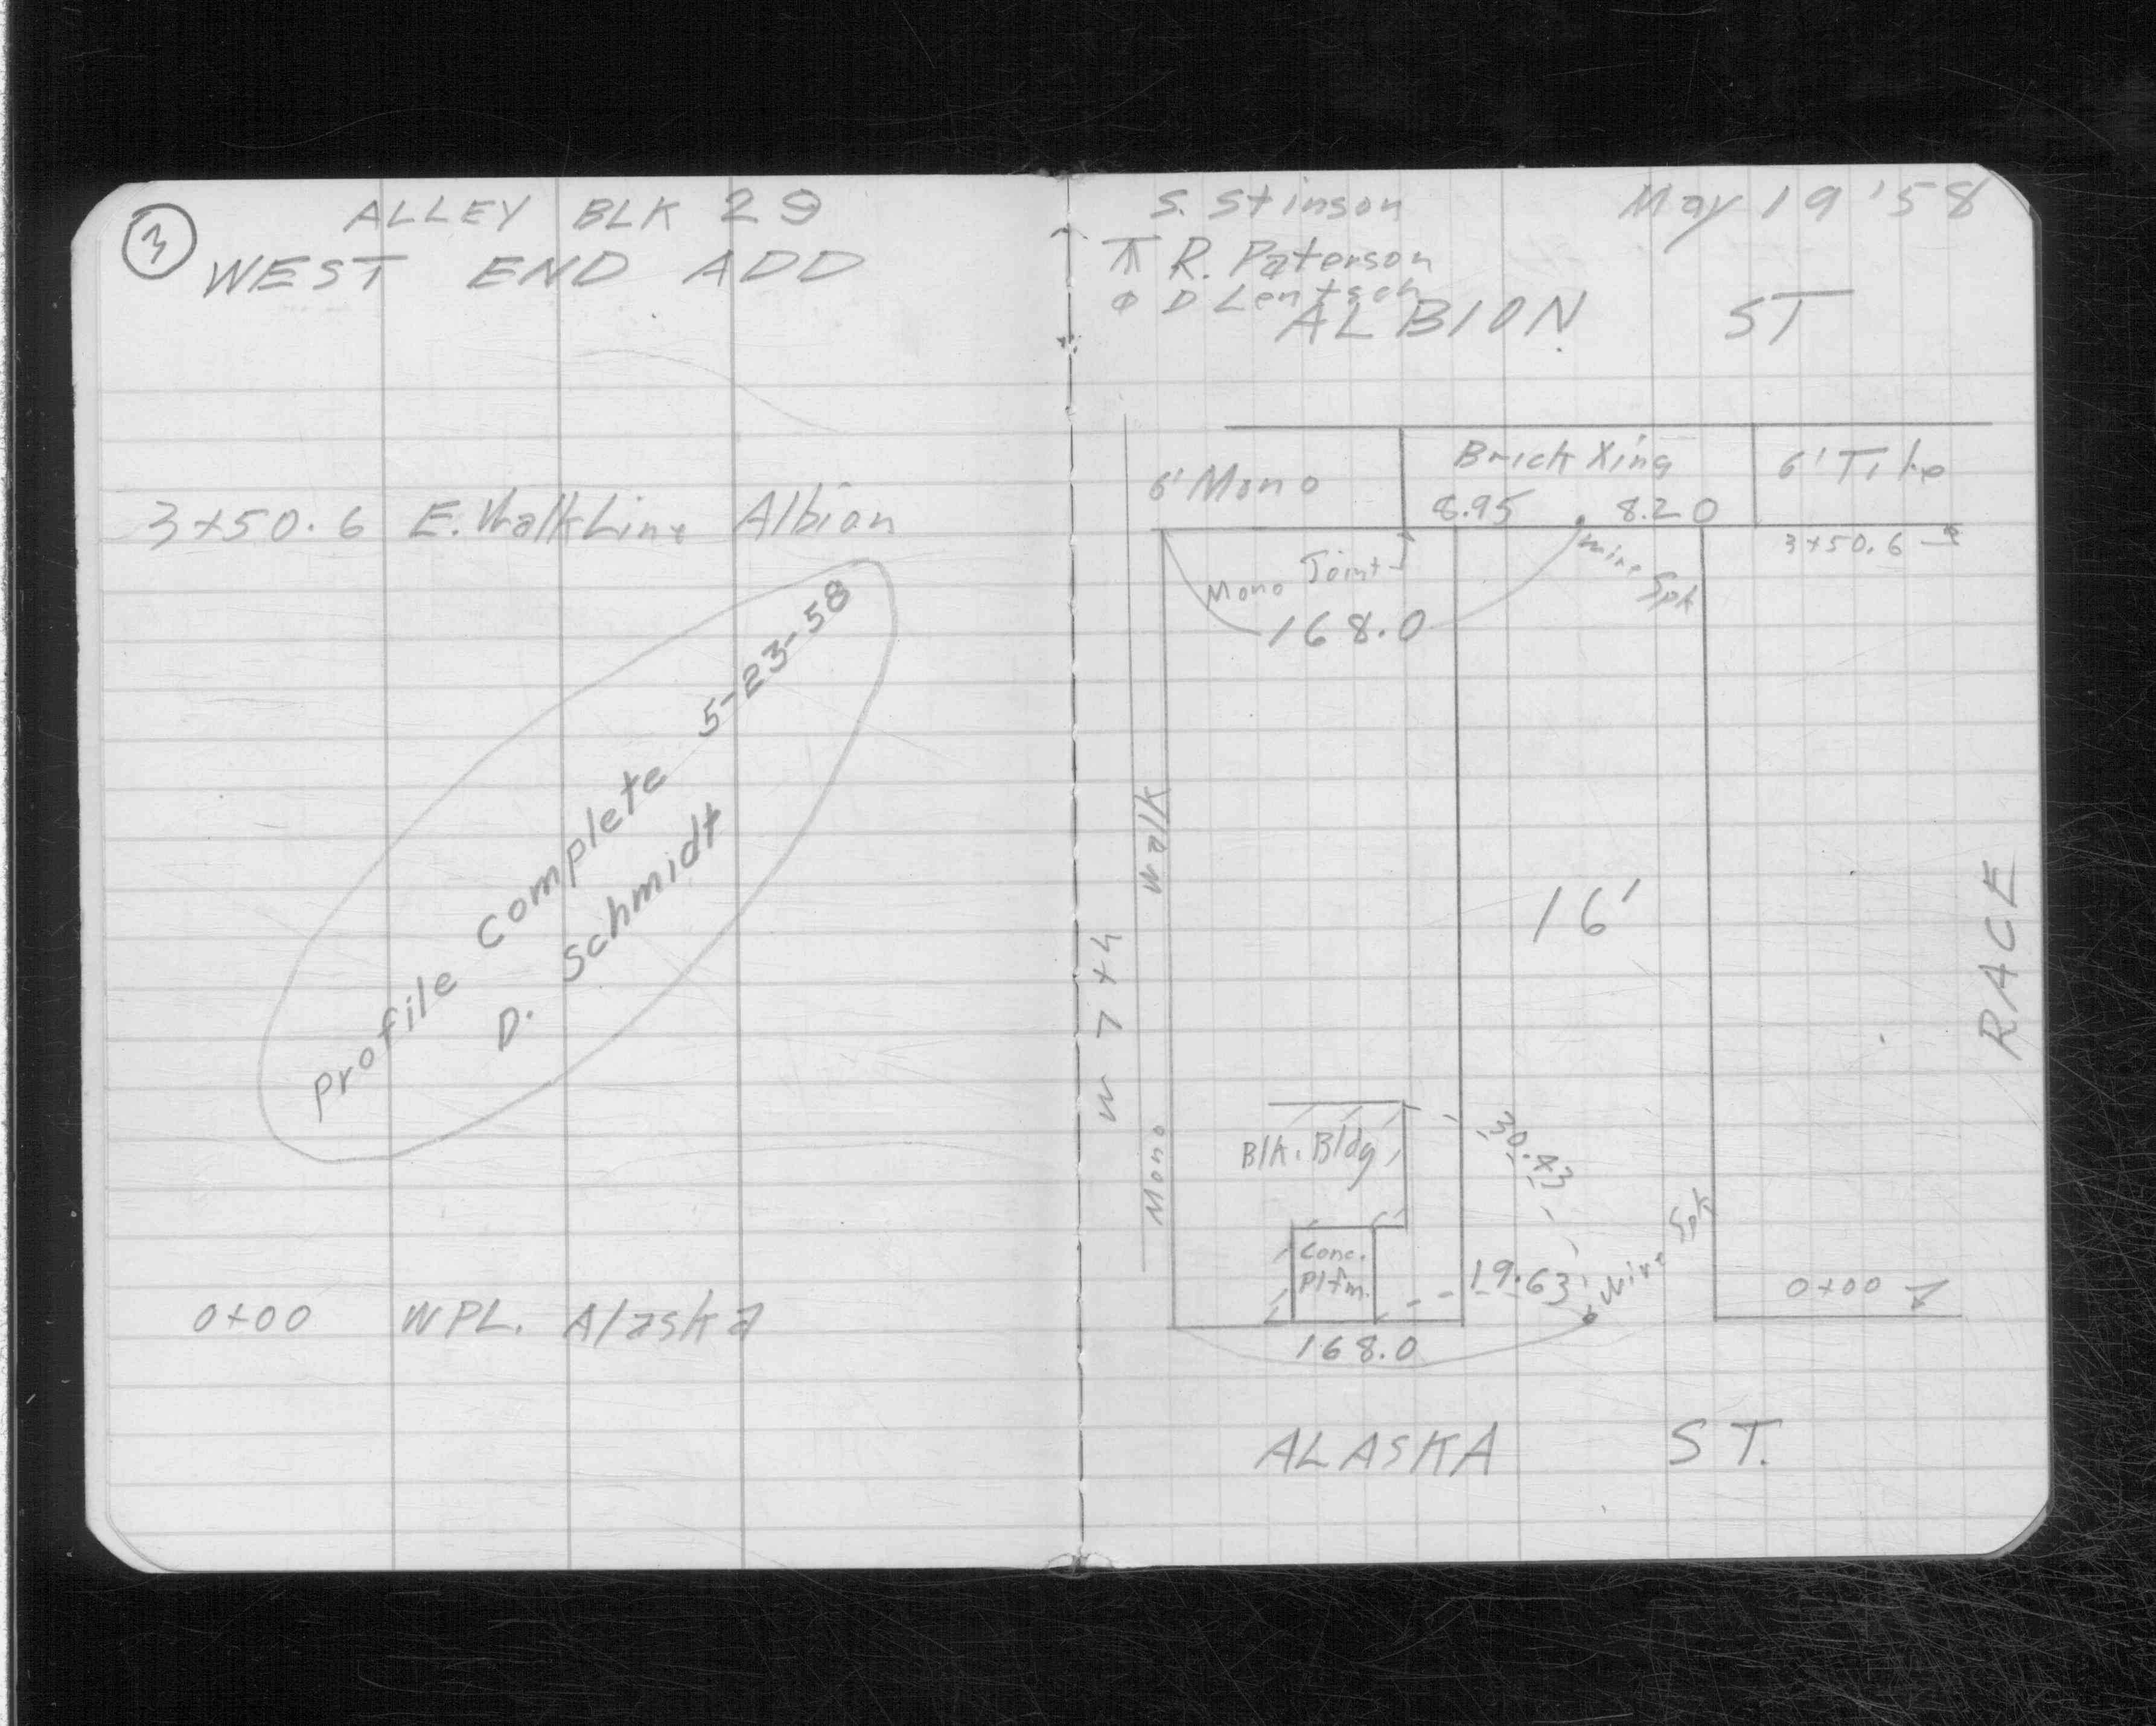 3
ALLEY BLK 29
WEST END ADD
3+50.6 E. Walk Line Albion
Profile Complete 5-23-58
D. Schmidt
0+00 W PL. Alaska
S. Stinson May 19 '58
R. Paterson
D Lentsch
ALBION ST
6' Mono
Brick Xing
6' Tile
8.95 8.20
3+50.6
Mono Joint
Wire Spk
168.0
Walk
16'
W 7th
RACE
Mono
Blk. Bldg
30.43
Conc.
Pltm.
19.63
Wire Spk
0+00
168.0
ALASKA ST.